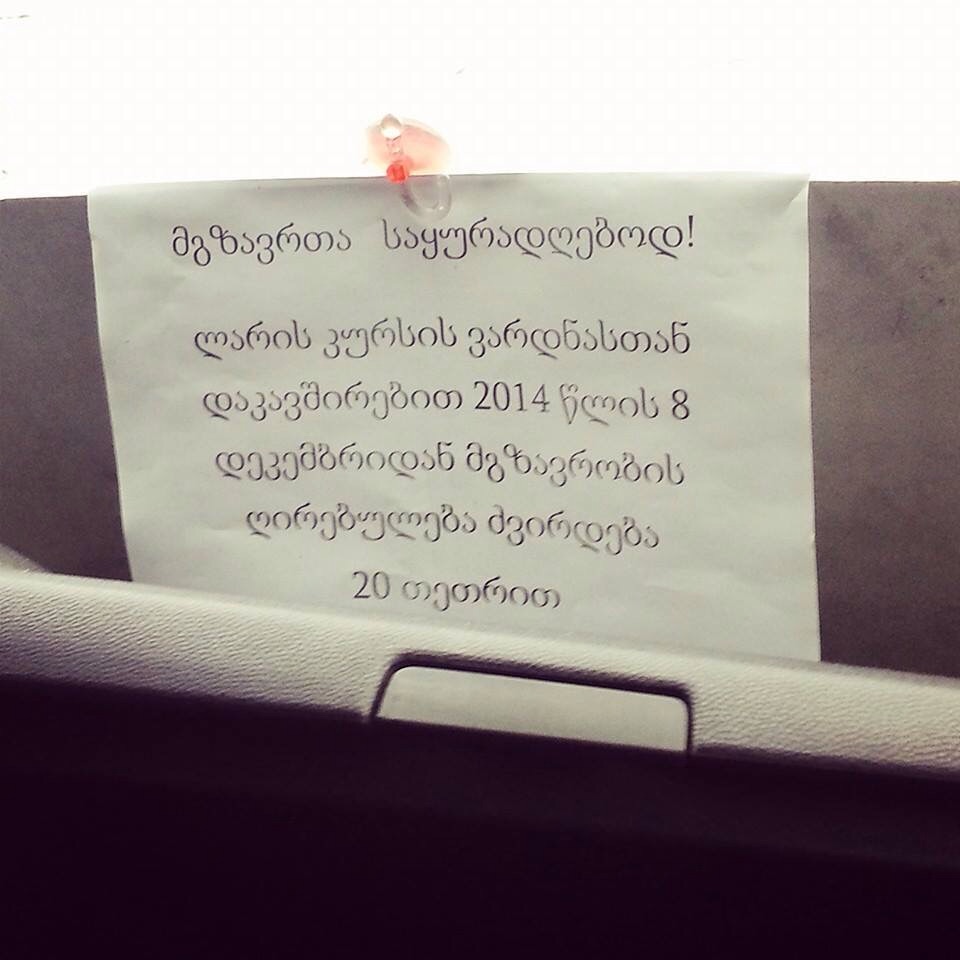 მგზავრთა საყურადღებოდ!
ლარის კურსის ვარდნასთან
დაკავშირებით 2014 წლის 8
დეკემბრიდან მგზავრობის
ღირებულება ძვირდება
20 თეთრით